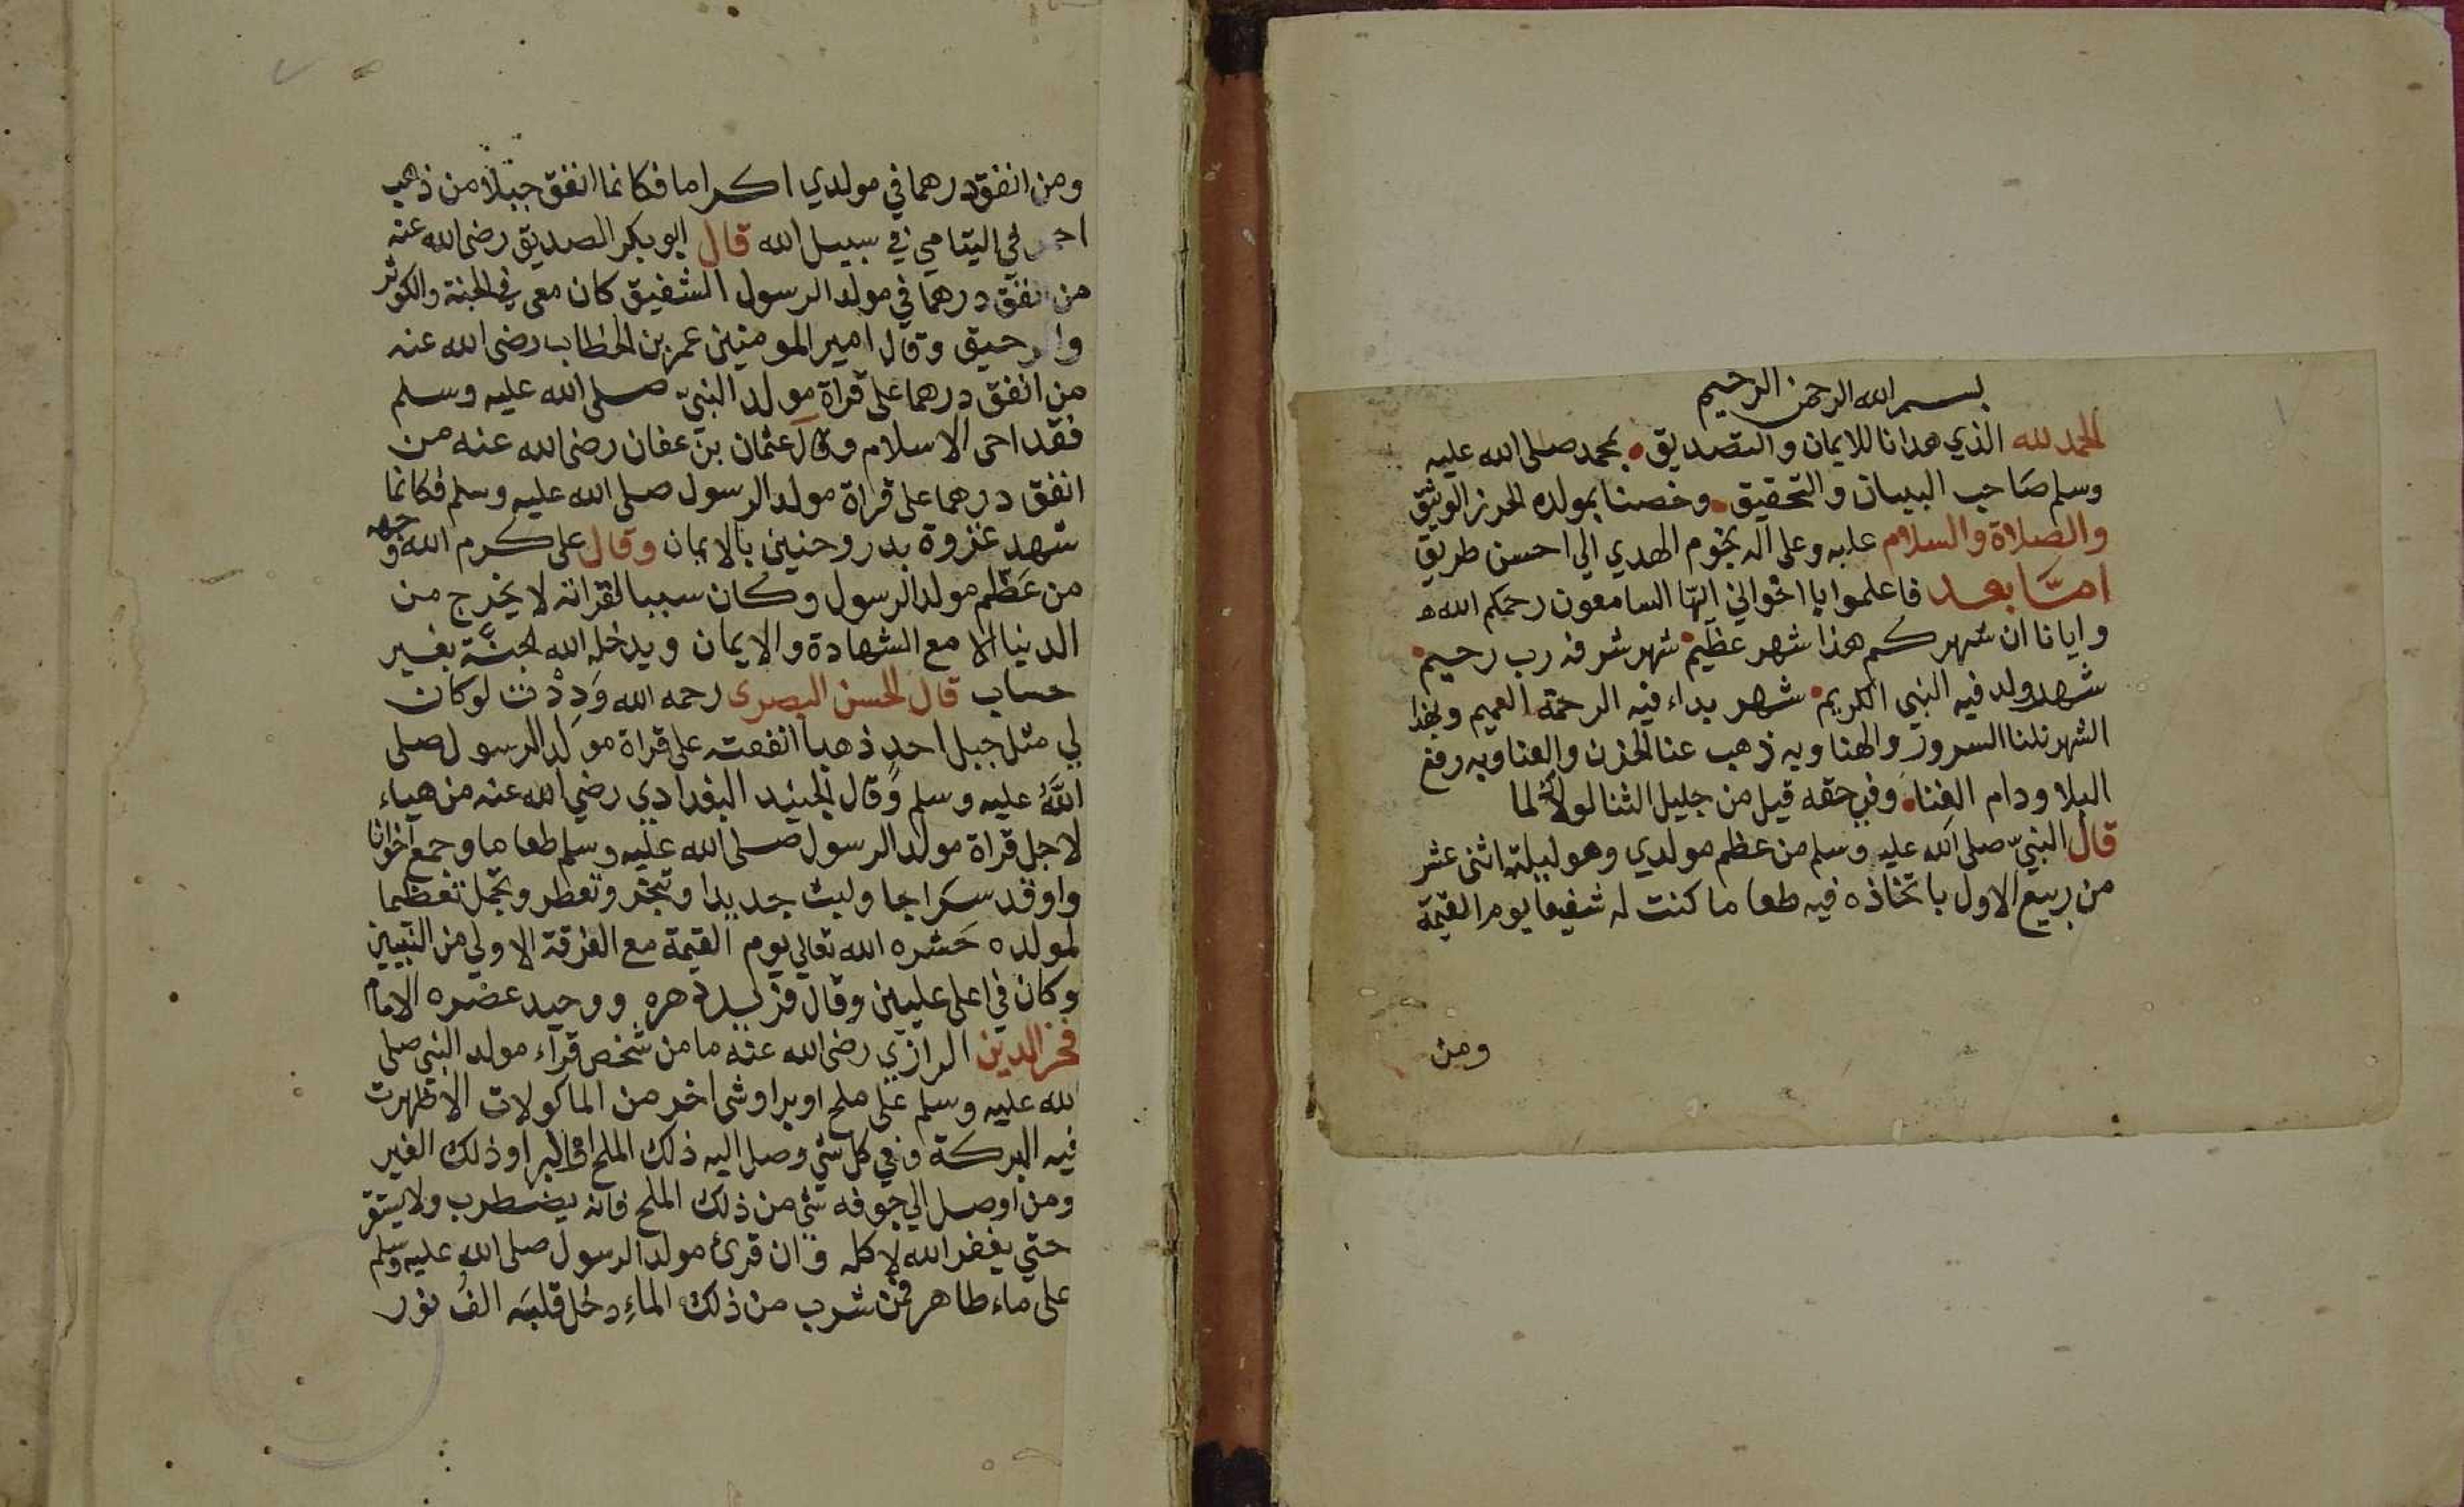 بسم الله الرحمن الرحيم
الحمد لله الذي هدانا للايمان والتصديق بمحمد صلى الله عليه
وسلم صاحب البيان والتحقيق وخصنا بمولده الحرز الوثيق
والصلاة والسلام عليه وعلى اله نجوم الهدي الي احسن طريق
امّا بعد فاعلموا يا اخواني ايها السامعون رحمكم الله
وايانا ان شهركم هذا شهر عظيم شهر شرفه رب رحيم
شهر ولد فيه النبي الكريم شهر بداء فيه الرحمة العميم وبهذا
الشهر نلنا السرور والهنا وبه ذهب عنا الحزن والعنا وبه رفع
البلا ودام الغنا وفي حقه قيل من جليل الثنا لولاك لما
قال النبيّ صلى الله عليه وسلم من عظم مولدي وهو ليلة اثنى عشر
من ربيع الاول باتخاذه فيه طعاما كنت له شفيعا يوم القيمة
ومن
ومن انفق درهما في مولدي اكراما فكانما انفق جبلا من ذهب
احمر في اليتامي في سبيل الله قال ابو بكر الصديق رضى الله عنه
من انفق درهما في مولد الرسول الشفيق كان معى في الجنة والكوثر
والرحيق وقال امير المومنين عمر بن الخطاب رضى الله عنه
من انفق درهما على قراة مولد النبيّ صلى الله عليه وسلم
فقد احى الاسلام وقال عثمان بن عفان رضى الله عنه من
انفق درهما على قراة مولد الرسول صلى الله عليه وسلم فكانما
شهد غزوة بدر وحنين بالايمان وقال على كرم الله وجهه
من عَظّم مولد الرسول وكان سببا لقراته لا يخرج من
الدنيا الا مع الشهادة والايمان ويدخله الله الجنَّة بغير
حساب قال الحسن البصرى رحمه الله وَدِدْت لو كان
لي مثل جبل احد ذهبا انفقته على قراة مولد الرسول صلى
اللّٰه عليه وسلم وقال الجنيد البغدادي رضي الله عنه من هياء
لاجل قراة مولد الرسول صلى الله عليه وسلم طعاما وجمع اخوانا
واوقد سراجا ولبث جديدا وتبخر وتعطر وتجمل تعظيما
لمولده حَشره الله تعالي يوم القيمة مع الفرقة الاولي من النبيين
وكان في اعلى عليين وقال فريد دهره ووحيد عصره الامام
فخر الدين الرازي رضى الله عنه ما من شخص قراء مولد النبي صلى
لله عليه وسلم على ملح او برا وشى اخر من الماكولات الا ظهرت
فيه البركة وفي كل شي وصل اليه ذلك الملح او البر او ذلك الغير
ومن اوصل الي جوفه شى من ذلك الملح فانه يضطرب ولا يستقر
حتي يغفر الله لاكله وان قرئ مولد الرسول صلى الله عليه وسلم
على ماء طاهر فمن شرب من ذلك الماءِ دخل قلبَه الفُ نور